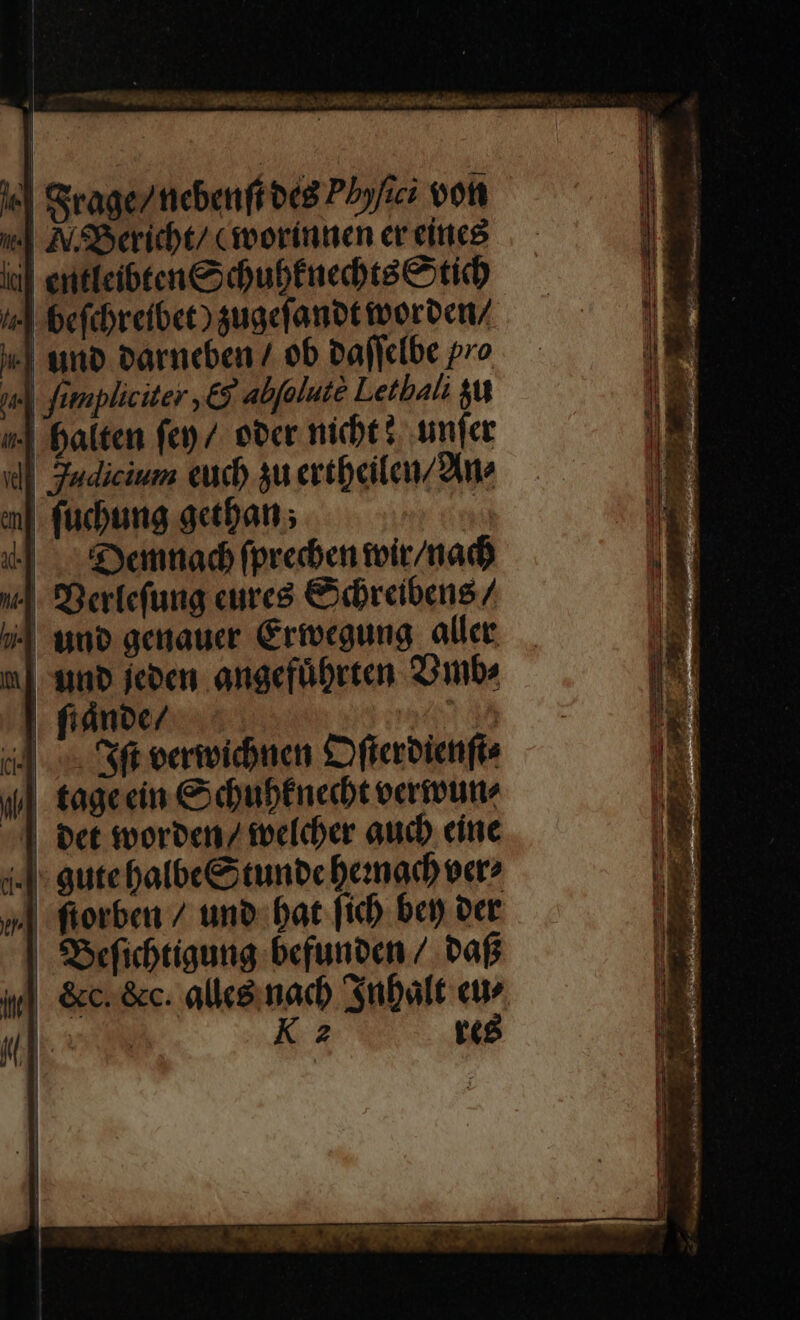 Frage/nebenſt des Phyſici von
N. Bericht/ (worinnen er eines
entleibten Schuhknechts Stich
beſchreibet) zugeſandt worden/
und darneben / ob daſſelbe pro
ſimpliciter, & abſolutè Lethali zu
halten ſey/ oder nicht? unſer
Judicium euch zu ertheilen/An⸗
ſuchung gethan;
Demnach ſprechen wir/nach
Verleſung eures Schreibens /
und genauer Erwegung aller
und jeden angefuͤhrten Vmb⸗
ſtaͤnde/
Iſt verwichnen Oſterdienſt⸗
tage ein Schuhknecht verwun⸗
det worden/ welcher auch eine
gute halbe Stunde hernach ver⸗
ſtorben / und hat ſich bey der
Beſichtigung befunden / daß
&c. &c. alles nach Inhalt eu⸗
K 2 res